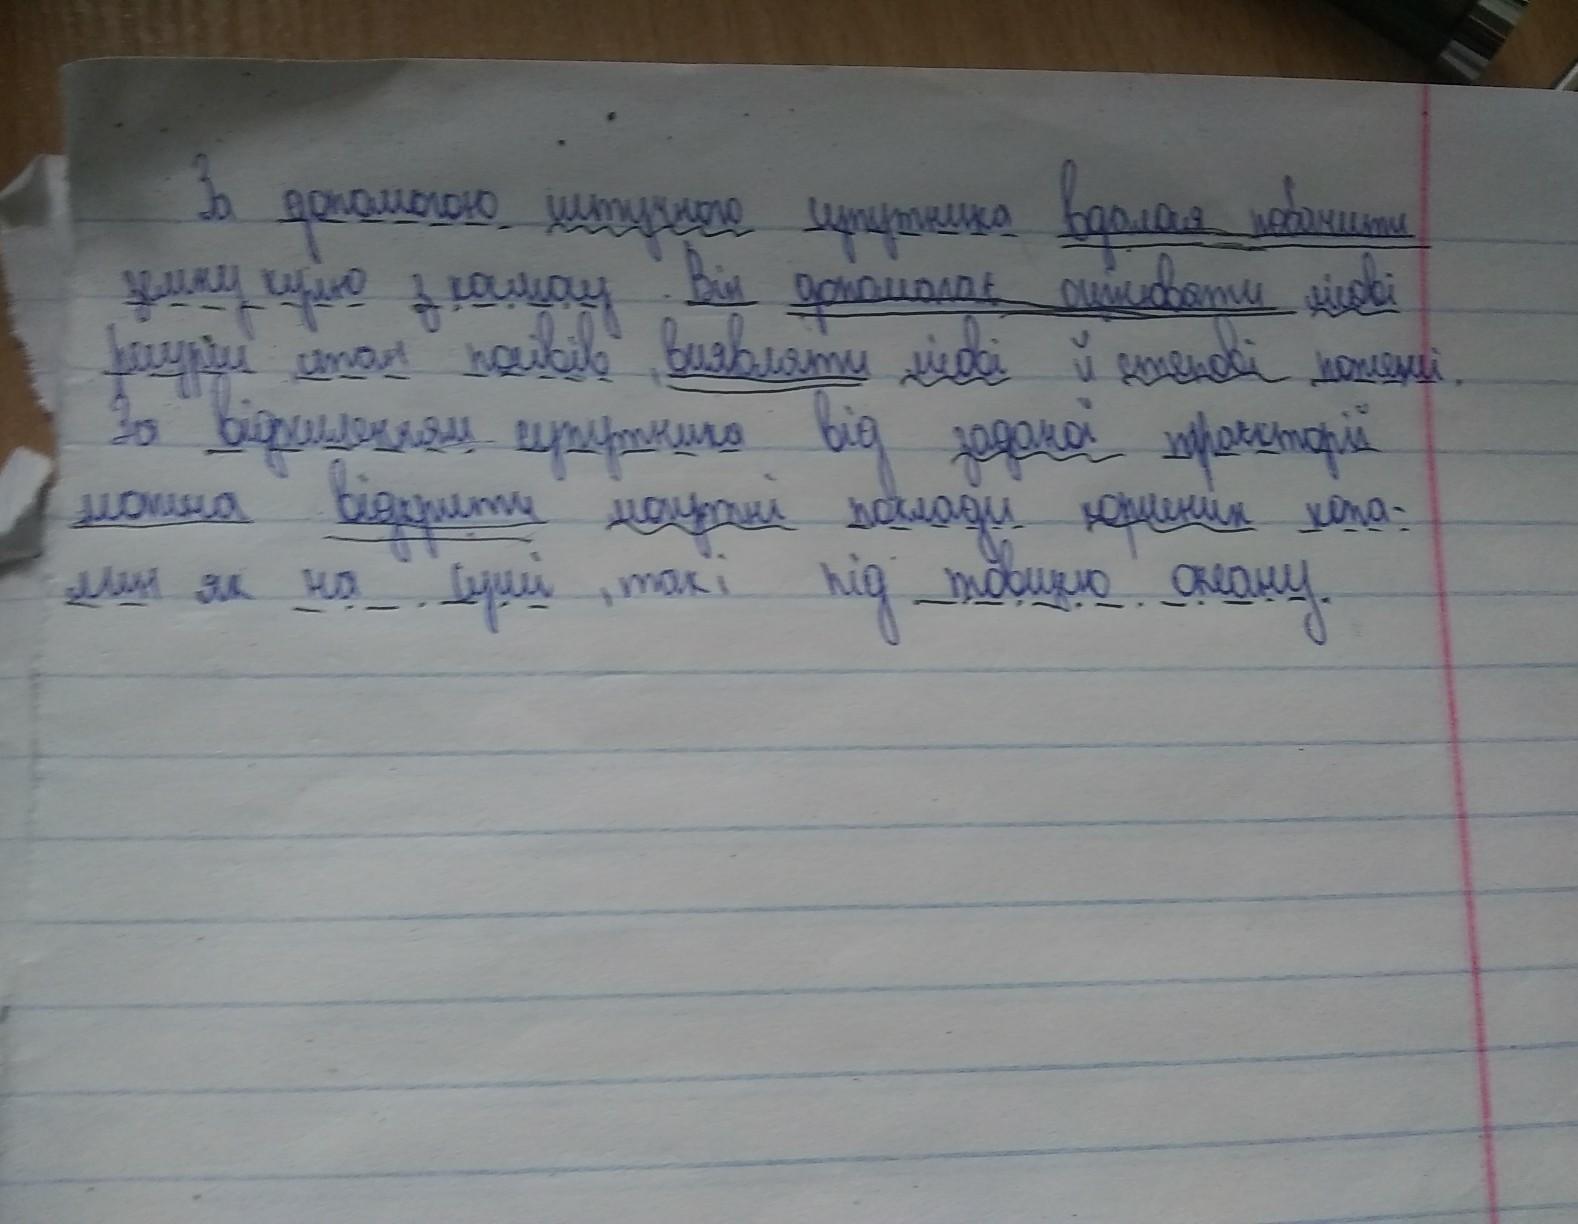 За допомогою штучного супутника вдалося побачити
земну кулю з космосу. Він допомагає оцінювати лісові
ресурси стан посівів, виявляти лісові й степові пожежі.
За відхиленням супутника від заданої траєкторії
можна відкрити могутні поклади корисних копа-
лин як на суші, так і під товщею океану.